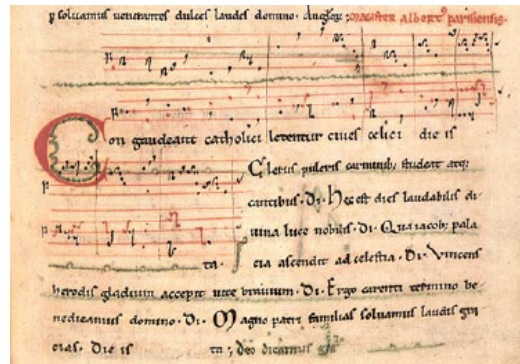 p soluamus uenerantes dulces laudes domino. magister albert9 parisiensis.
Con gaudeant catholici letentur ciues celici die is
Clerus pulcris carminib; studeat atq;
cantibus. Di. Hec est dies laudabilis di
uina luce nobilis. Di. Qua iacob; pala
ta. cia ascendit ad celestia. Di. Vincens
herodis gladium accepit uite brauium. Di. Ergo carenti termino be
nedicamus domino. Di. Magno patri familias soluamus laudis gra
cias. Die is ta; deo dicamus